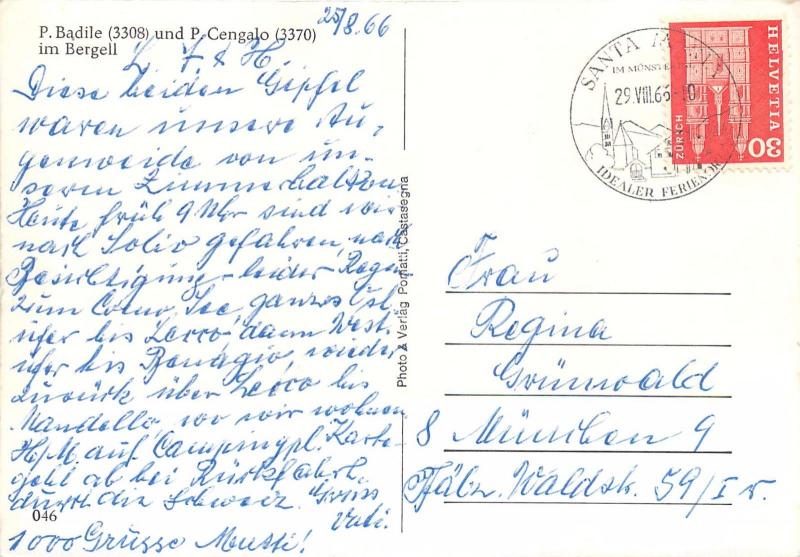 P. Badile (3308) und P. Cengalo (3370)
im Bergell
25/8.66
L. F & H.
Diese beiden Gipfel
waren unsere Au-
genweide von un-
serem Zimmerbalkon
Heute früh 9 Uhr sind wir
nach Solio gefahren, nach
Besichtigung - leider Regen
zum Como See, ganzes Ost-
ufer bis Lecco, dann West-
ufer bis Benagio, wieder
zurück über Lecco bis
Mandello, wo wir wohnen
H/M. auf Campingpl. Karte
geht ab bei Rückfahrt
durch die Schweiz. Gruss
Vati.
1000 Grüsse Mutti!
046
Photo & Verlag Pomatti, Castasegna
SANTA
IM MÜNSTER
29.VIII.66-10
IDEALER FERIENORT
HELVETIA
ZÜRICH
30
Frau
Regina
Grünwald
8 München 9
Pfälz. Waldstr. 59/I r.